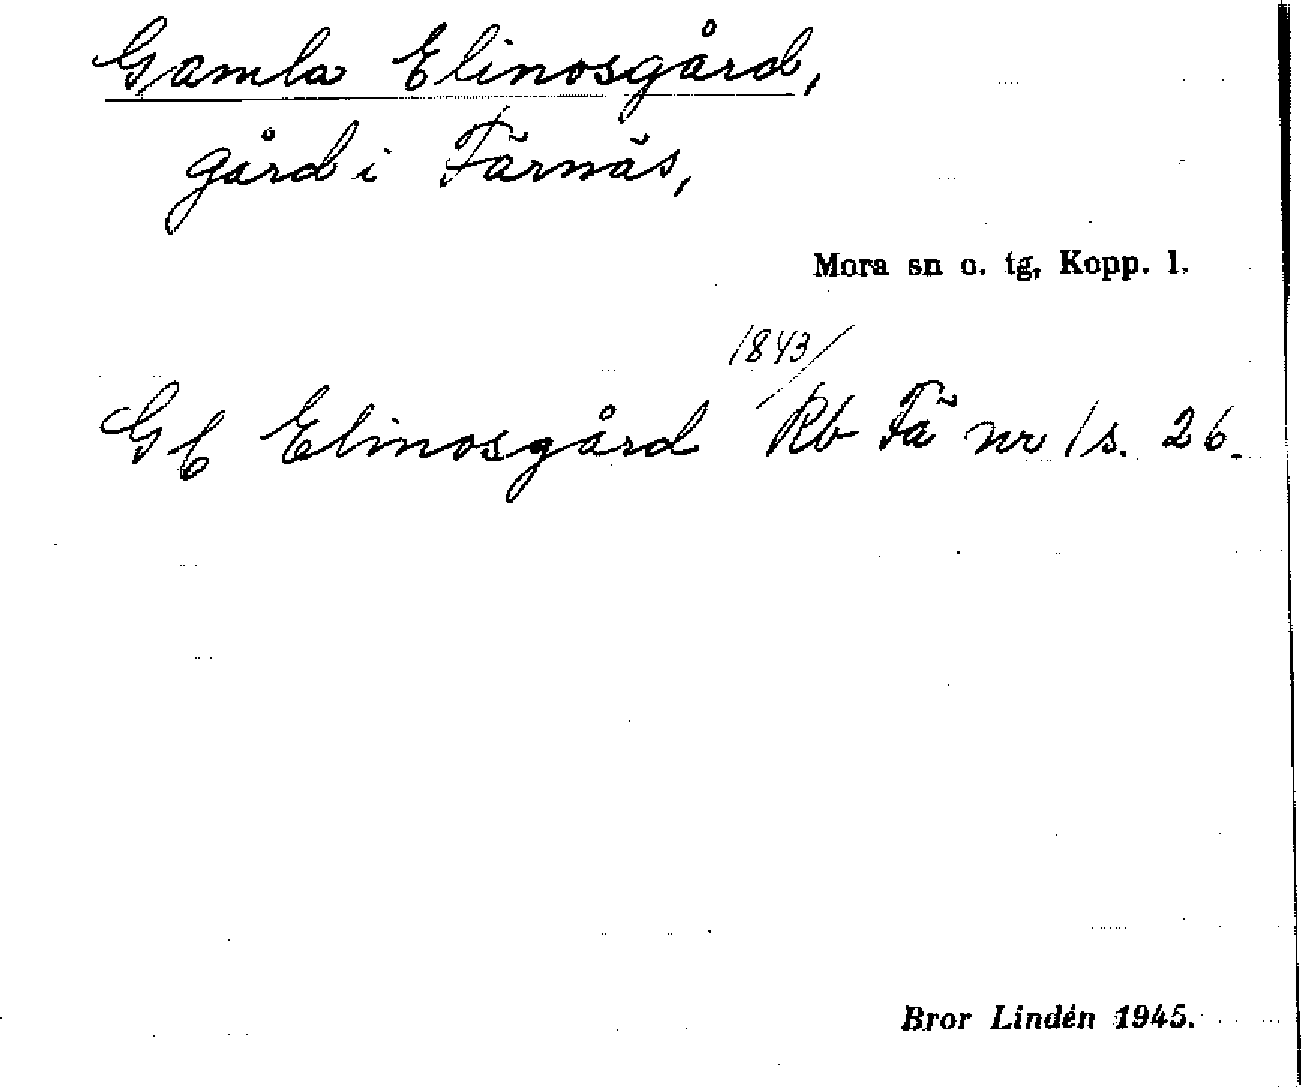 Gamla Elinosgård,
gård i Färnäs,
Mora sn o. tg, Kopp. l.
1843/
Gl Elinosgård Rb Fä nr 1 s. 26.
Bror Lindén 1945.